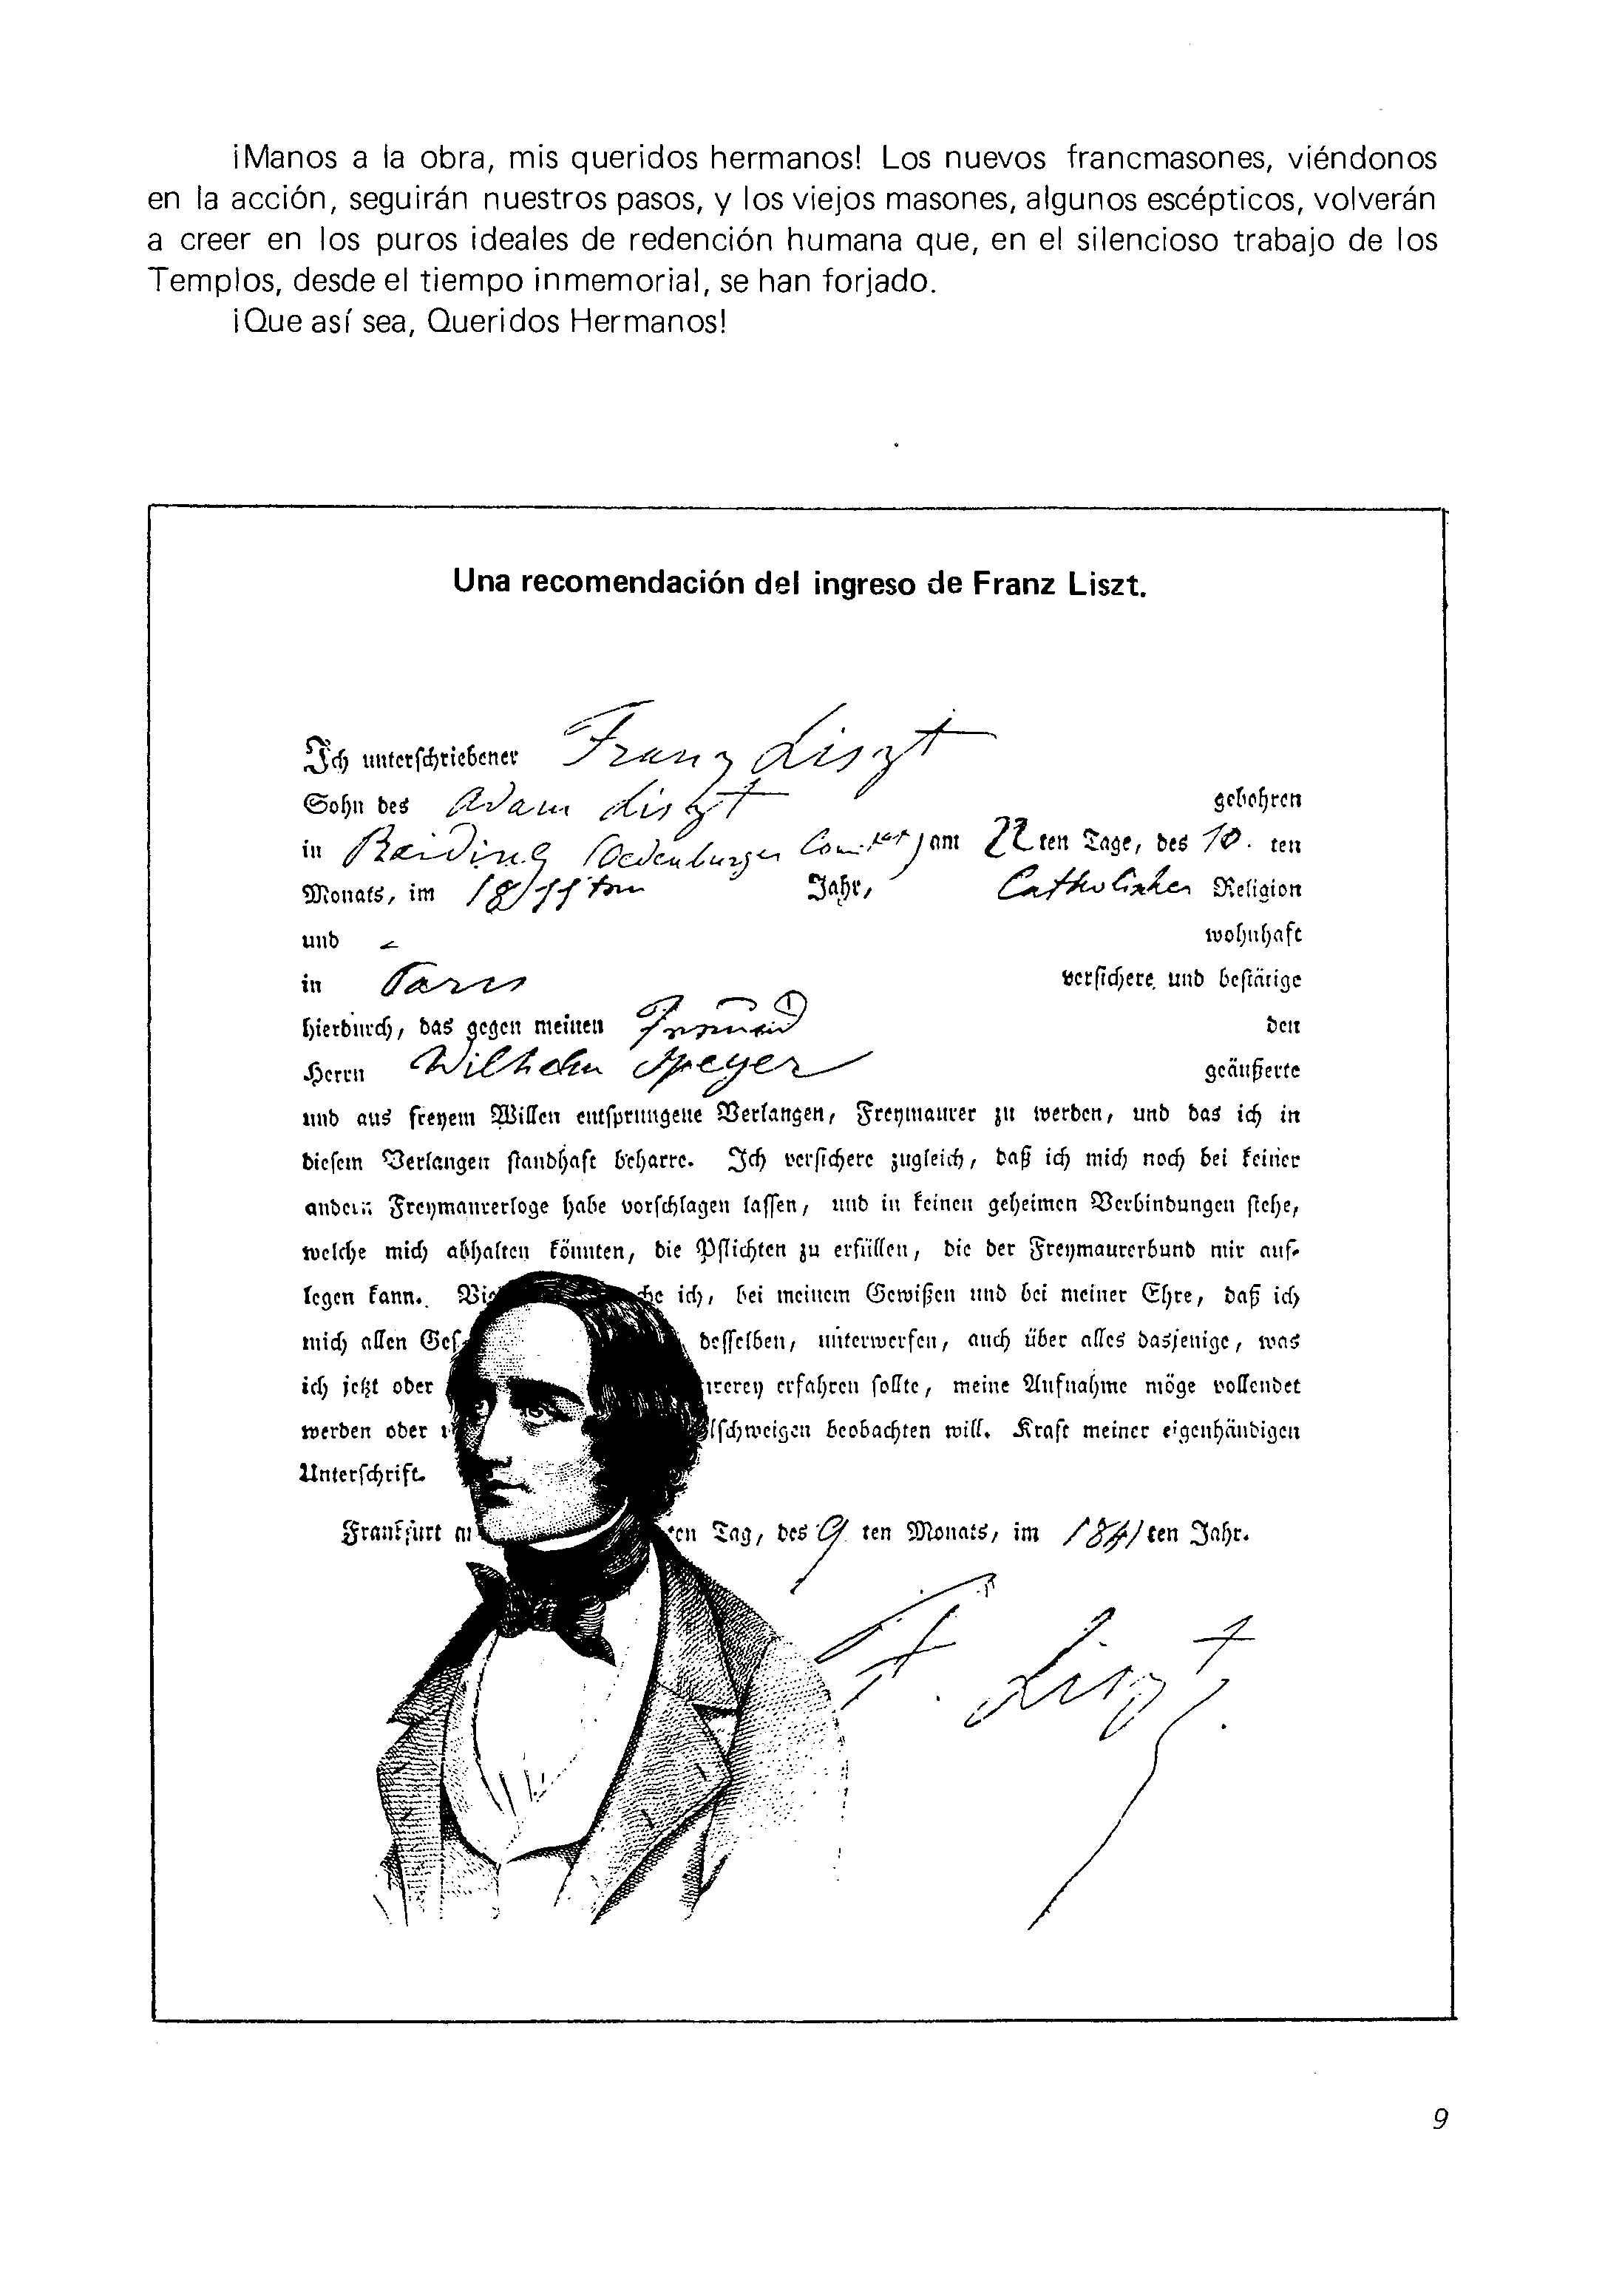 ¡Manos a la obra, mis queridos hermanos! Los nuevos francmasones, viéndonos
en la acción, seguirán nuestros pasos, y los viejos masones, algunos escépticos, volverán
a creer en los puros ideales de redención humana que, en el silencioso trabajo de los
Templos, desde el tiempo inmemorial, se han forjado.
¡Que así sea, Queridos Hermanos!
Una recomendación del ingreso de Franz Liszt.
Ich unterschriebener Franz Liszt
Sohn des Adam Liszt gebohren
in Raiding (Oedenburger Comitat) am 22 ten Tage, des 10. ten
Monats, im 1811 ten Jahr, Catholischer Religion
und - wohnhaft
in Paris versichere und bestätige
hierdurch, das gegen meinen Freund den
Herrn Wilhelm Speyer geäußerte
und aus freyem Willen entsprungene Verlangen, Freymaurer zu werden, und das ich in
diesem Verlangen standhaft beharre. Ich versichere zugleich, daß ich mich noch bei keiner
andern Freymaurerloge habe vorschlagen lassen, und in keinen geheimen Verbindungen stehe,
welche mich abhalten könnten, die Pflichten zu erfüllen, die der Freymaurerbund mir auf-
legen kann. ich, bei meinem Gewißen und bei meiner Ehre, daß ich
mich allen desselben, unterwerfen, auch über alles dasjenige, was
ich jetzt oder erfahren sollte, meine Aufnahme möge vollendet
werden oder beobachten will. Kraft meiner eigenhändigen
Unterschrift.
Frankfurt Tag, des 9 ten Monats, im 1841 ten Jahr.
F. Liszt.
9